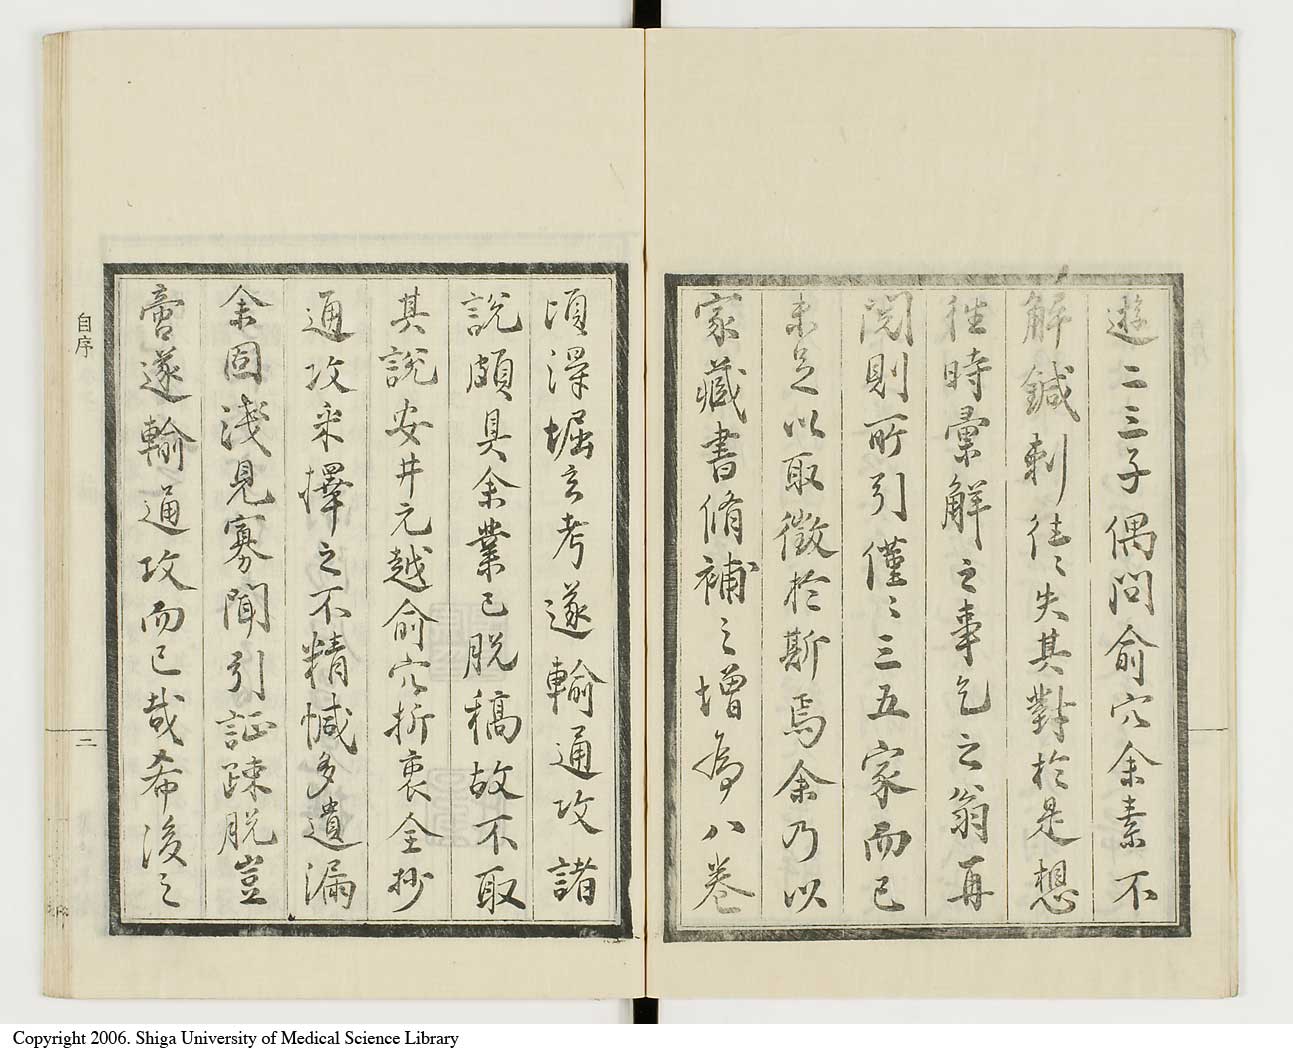 遊二三子偶問兪穴余素不
解鍼刺往〻失其對於是想
往時彙解之事乞之翁再
閲則所引僅〻三五家而已
未足以取徴於斯焉余乃以
家藏書脩補之增為八卷
頃得堀玄考遂輸通攷諸
說頗具余業已脱稿故不取
其說安井元越俞穴折衷全抄
通攷采擇之不精惐多遺漏
余固淺見寡聞引証踈脱豈
啻遂輸通攻而已哉希後之
自序
二
Copyright 2006. Shiga University of Medical Science Library